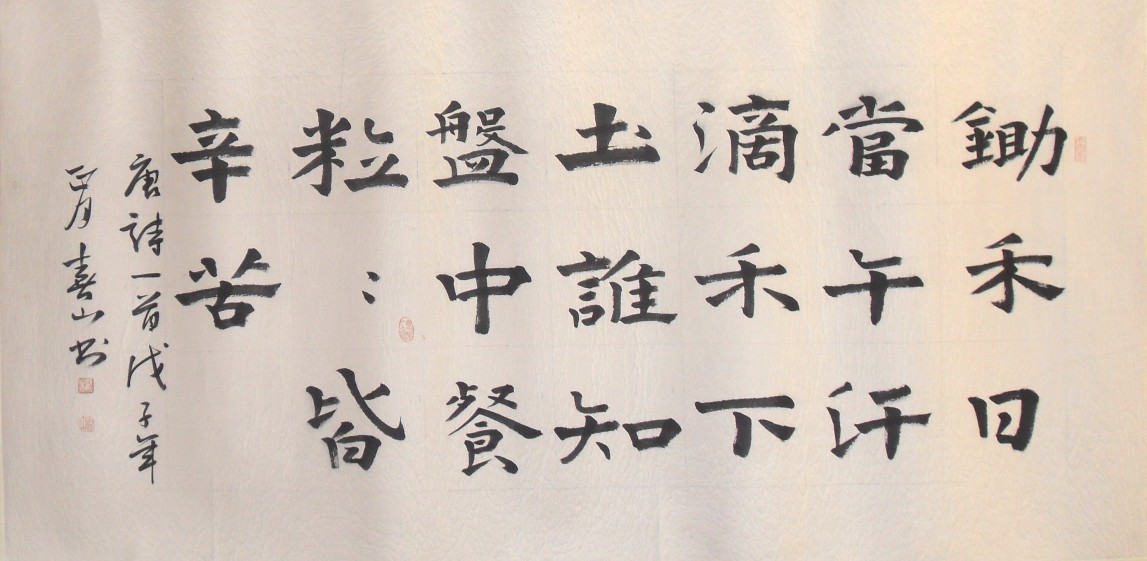 鋤禾日
當午汗
滴禾下
土誰知
盤中餐
粒〻皆
辛苦
唐詩一首戊子年
正月喜山书